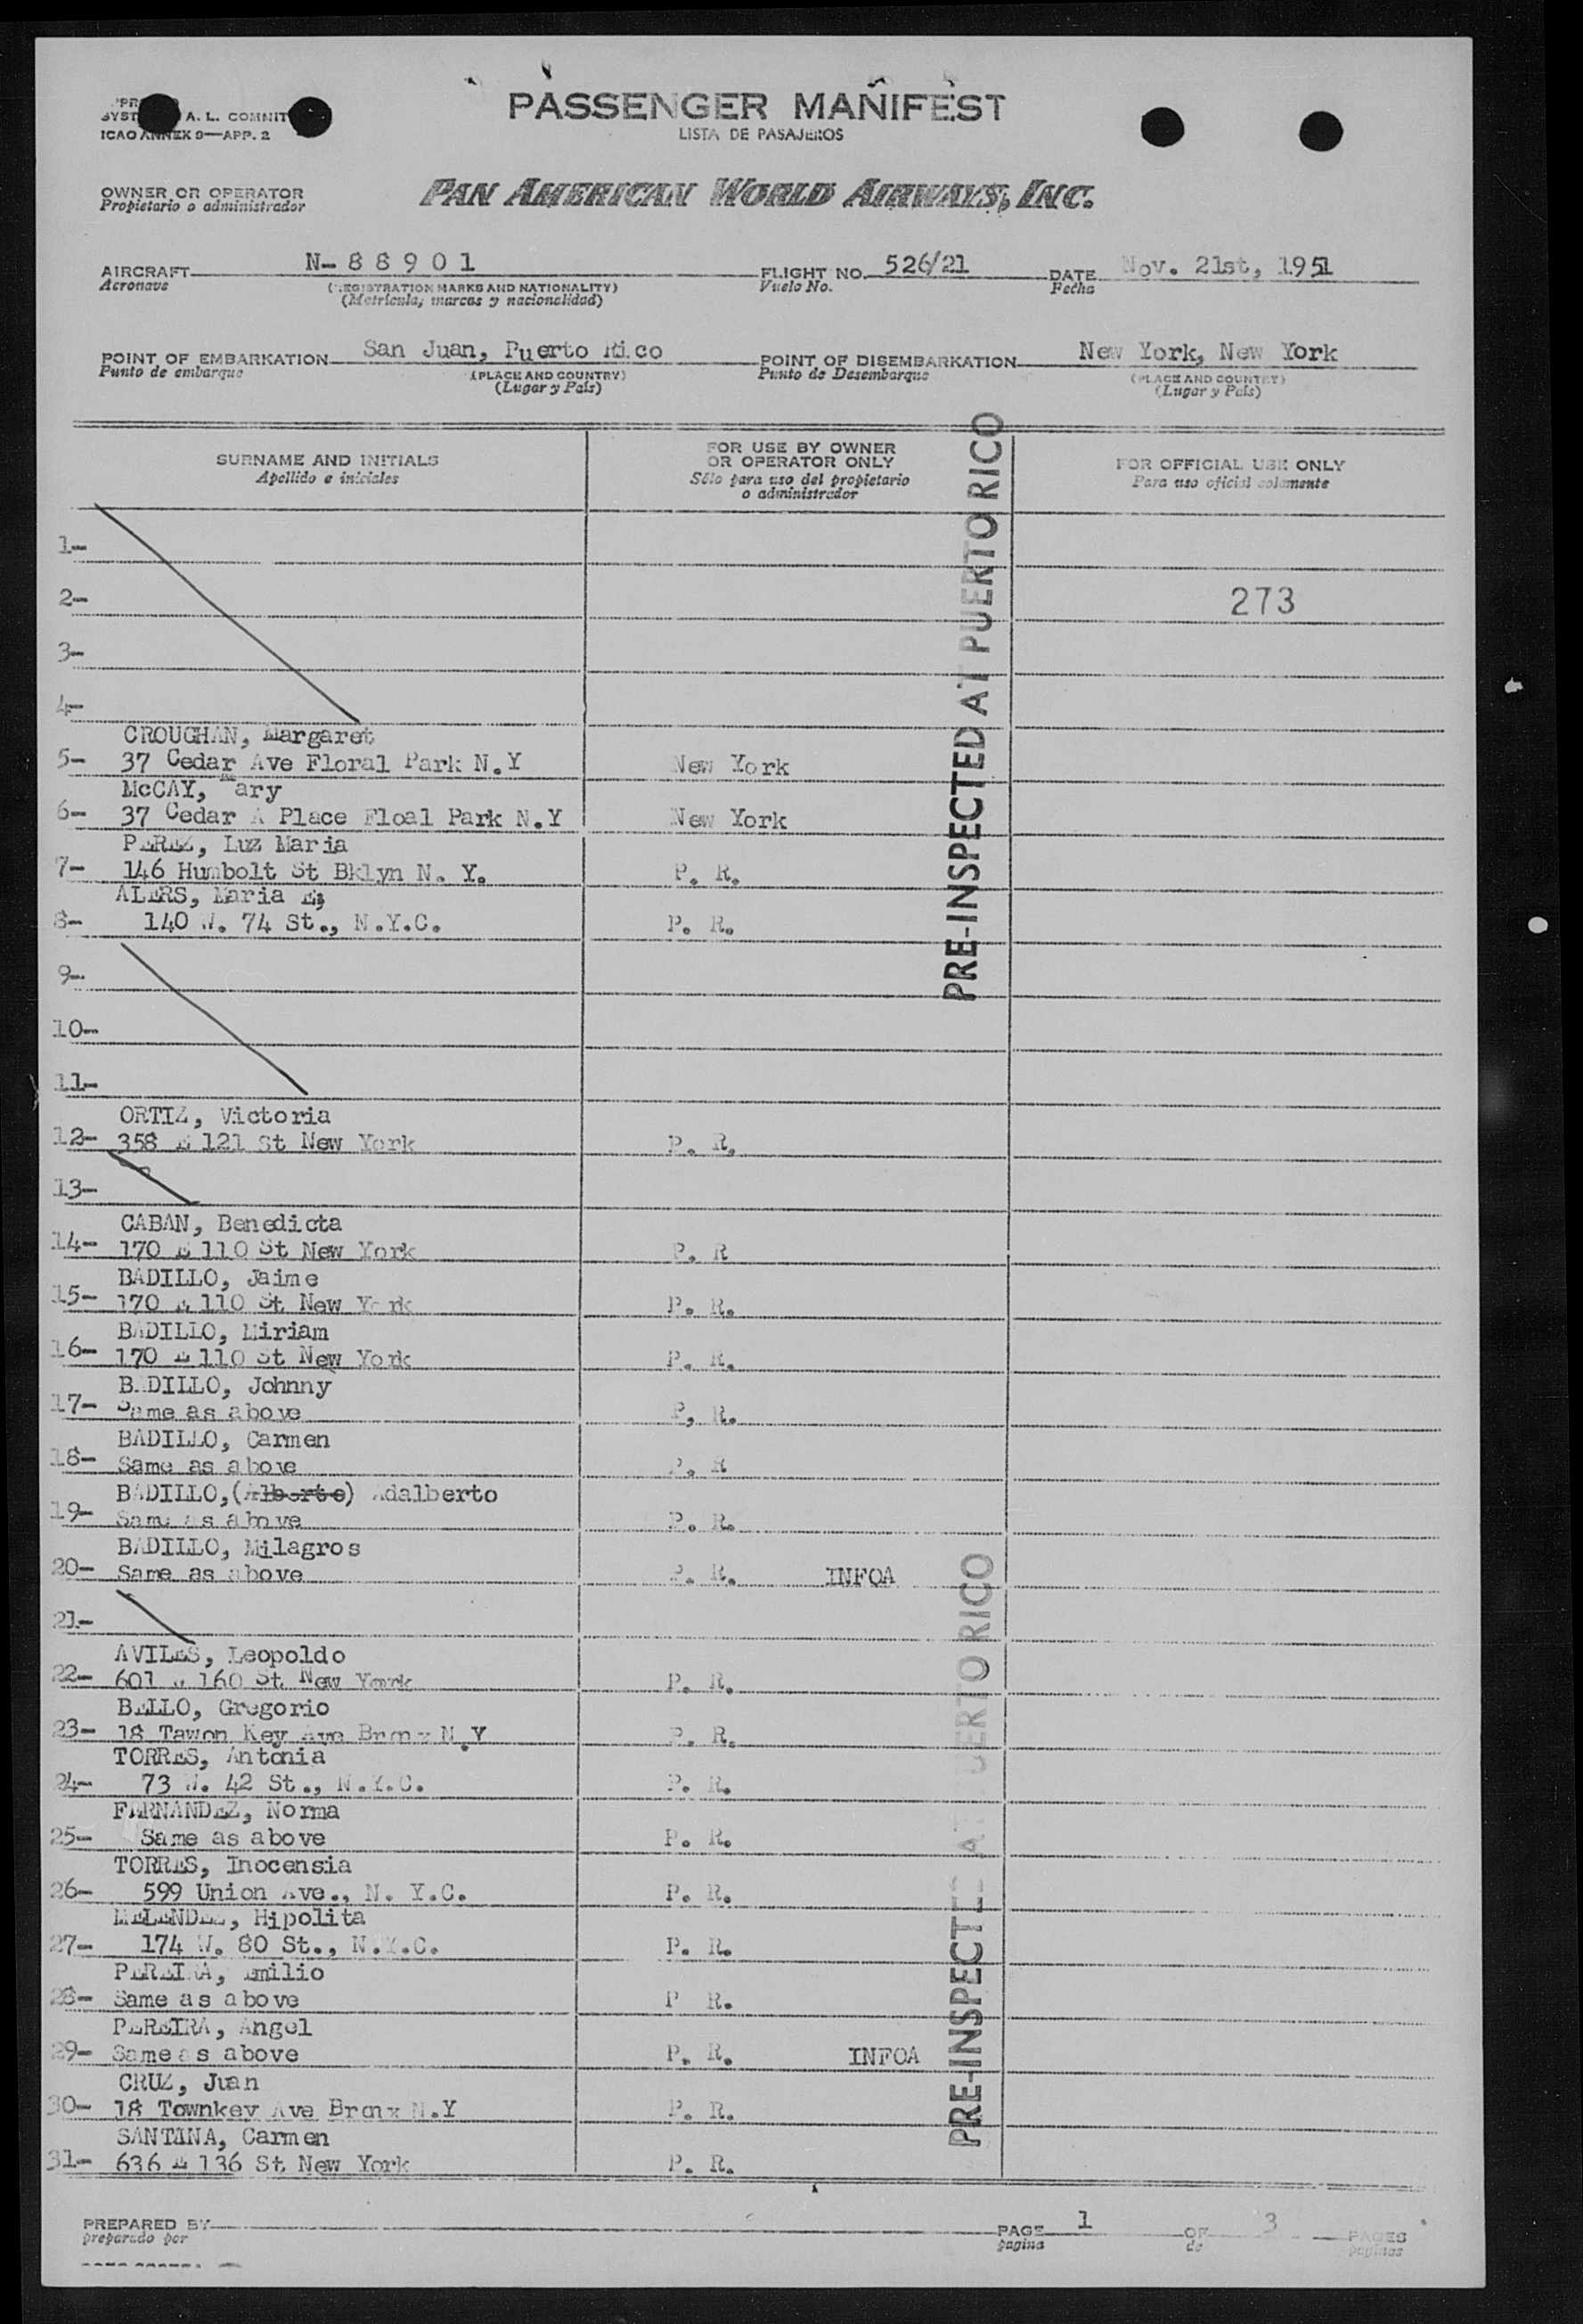 PASSENGER MANIFEST
LISTA DE PASAJEROS
A. L. COMMIT
ICAO ANNEX 9—APP. 2
OWNER OR OPERATOR
Propietario o administrador
PAN AMERICAN WORLD AIRWAYS, INC.
AIRCRAFT N-88901 FLIGHT NO. 526/21 DATE Nov. 21st, 1951
Aeronave (REGISTRATION MARKS AND NATIONALITY) Vuelo No. Fecha
(Matrícula, marcas y nacionalidad)
POINT OF EMBARKATION San Juan, Puerto Rico POINT OF DISEMBARKATION New York, New York
Punto de embarque (PLACE AND COUNTRY) Punto de Desembarque (PLACE AND COUNTRY)
(Lugar y País) (Lugar y País)
SURNAME AND INITIALS FOR USE BY OWNER OR OPERATOR ONLY FOR OFFICIAL USE ONLY
Apellido e iniciales Sólo para uso del propietario o administrador Para uso oficial solamente
PRE-INSPECTED AT PUERTO RICO
1-
2- 273
3-
4-
CROUGHAN, Margaret
5- 37 Cedar Ave Floral Park N.Y New York
McCAY, Mary
6- 37 Cedar Place Floal Park N.Y New York
PEREZ, Luz Maria
7- 146 Humbolt St Bklyn N. Y. P. R.
ALERS, Maria
8- 140 W. 74 St., N.Y.C. P. R.
9-
10-
11-
ORTIZ, Victoria
12- 358 E 121 St New York P. R.
13-
CABAN, Benedicta
14- 170 E 110 St New York P. R
BADILLO, Jaime
15- 170 E 110 St New York P. R.
BADILLO, Miriam
16- 170 E 110 St New York P. R.
BADILLO, Johnny
17- Same as above P, R.
BADILLO, Carmen
18- Same as above P. R
BADILLO,(Alberto) Adalberto
19- Same as above P. R.
BADILLO, Milagros
20- Same as above P. R. INFOA
21-
AVILES, Leopoldo
22- 601 W 160 St New York P. R.
BELLO, Gregorio
23- 18 Tawon Key Ave Bronx N.Y P. R.
TORRES, Antonia
24- 73 W. 42 St., N.Y.C. P. R.
FERNANDEZ, Norma
25- Same as above P. R.
TORRES, Inocensia
26- 599 Union Ave., N. Y.C. P. R.
MELENDEZ, Hipolita
27- 174 W. 80 St., N.Y.C. P. R.
PEREIRA, Emilio
28- Same as above P R.
PEREIRA, Angel
29- Same as above P. R. INFOA
CRUZ, Juan
30- 18 Townkey Ave Bronx N.Y P. R.
SANTANA, Carmen
31- 636 E 136 St New York P. R.
PRE-INSPECTED AT PUERTO RICO
PREPARED BY PAGE 1 OF 3 PAGES
preparado por pagina de paginas